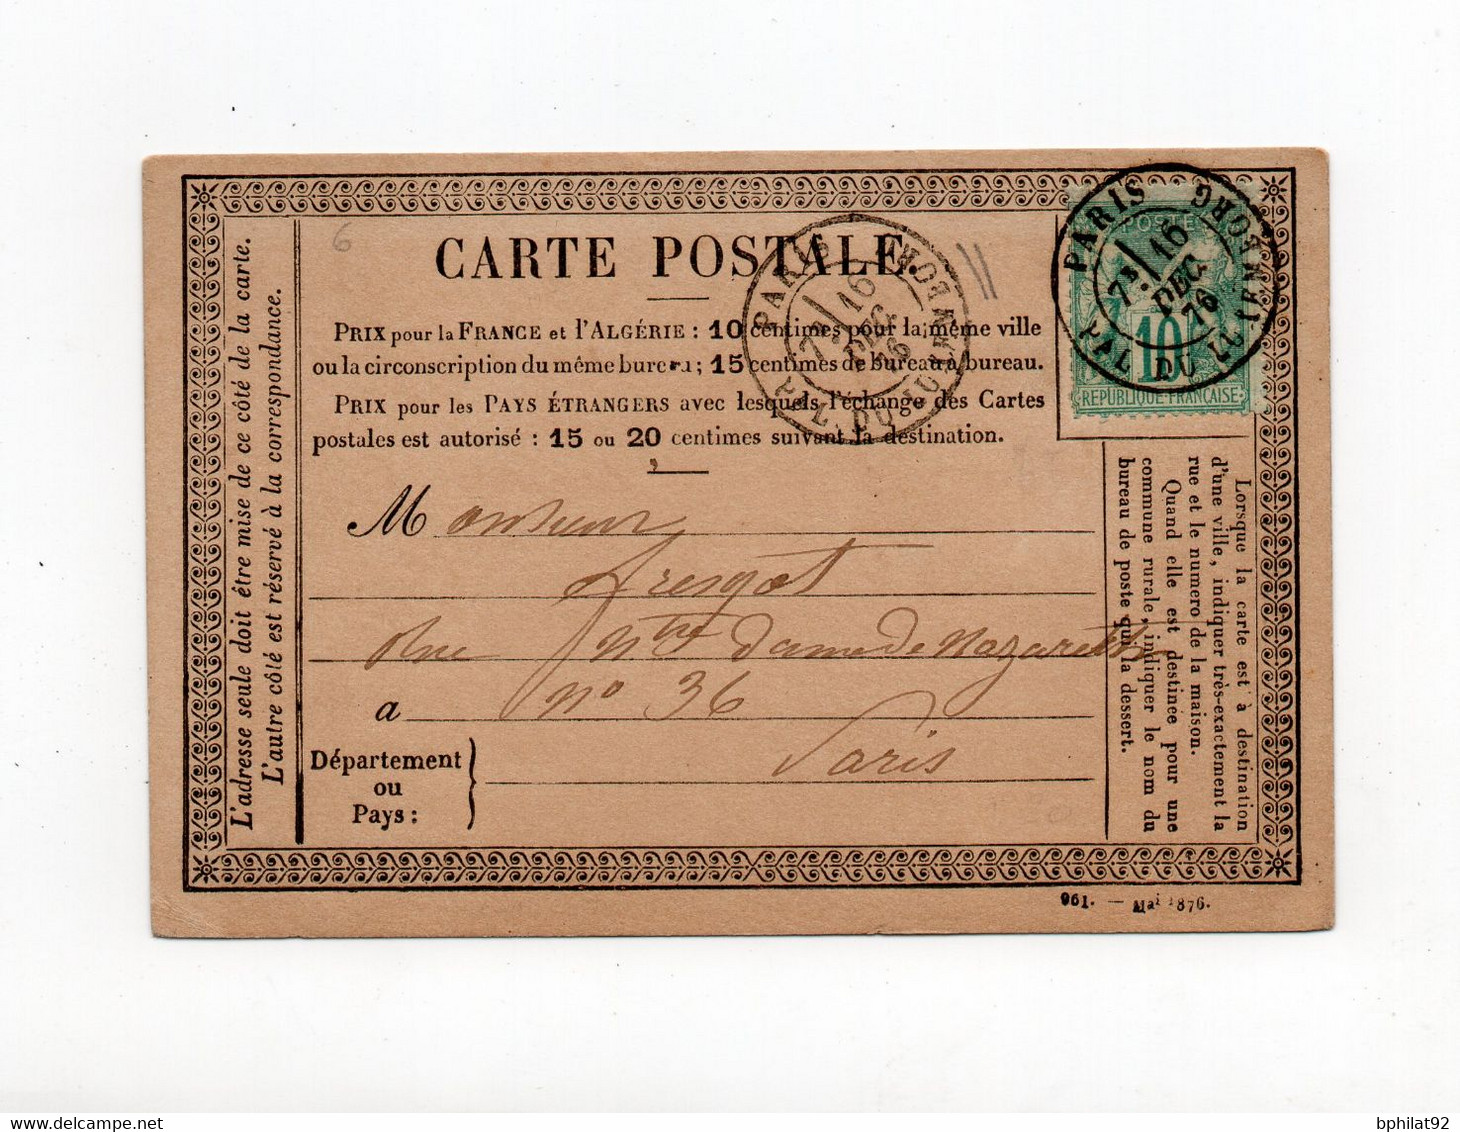 6
CARTE POSTALE
PRIX pour la FRANCE et l'ALGÉRIE : 10 centimes pour la même ville
ou la circonscription du même bureau ; 15 centimes de bureau à bureau.
PRIX pour les PAYS ÉTRANGERS avec lesquels l'échange des Cartes
postales est autorisé : 15 ou 20 centimes suivant la destination.
PARIS
PAL. DU LUXEMBOURG
7E
16
DEC.
76
POSTES
10
REPUBLIQUE FRANÇAISE
PARIS
PAL. DU LUXEMBOURG
7E
16
DEC.
76
L'adresse seule doit être mise de ce côté de la carte.
L'autre côté est réservé à la correspondance.
Monsieur
Rue Ntre dame de Nazareth
a no 36
Paris
Département
ou
Pays :
Lorsque la carte est à destination
d'une ville, indiquer très-exactement la
rue et le numero de la maison.
Quand elle est destinée pour une
commune rurale, indiquer le nom du
bureau de poste qui la dessert.
961. — Mai 1876.
bphilat92